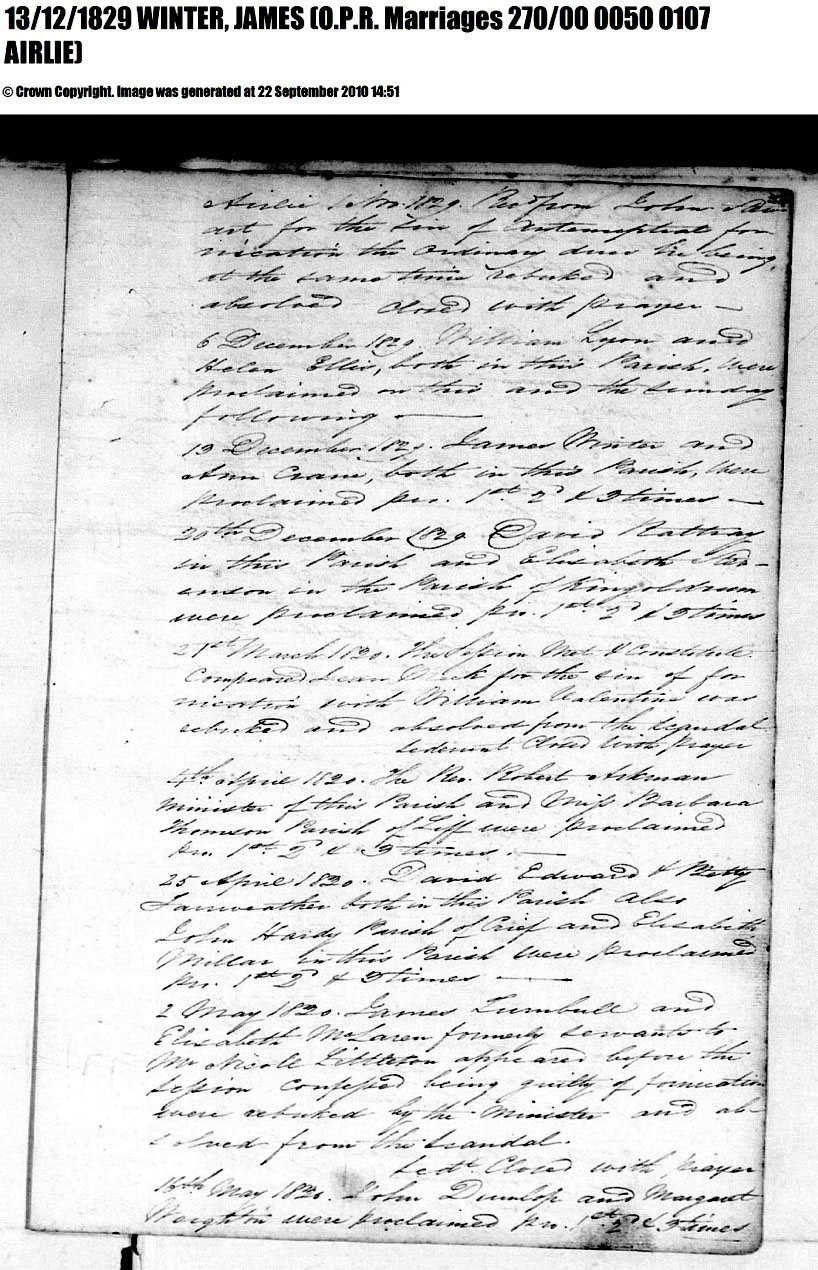 13/12/1829 WINTER, JAMES (O.P.R. Marriages 270/00 0050 0107
AIRLIE)
© Crown Copyright. Image was generated at 22 September 2010 14:51
Airlie 1 Nov. 1829. from John
art for the Sin of Antenuptial for
nication the ordinary dues he being,
at the same time rebuked and
absolved closed with prayer —
6 December 1829. William Lyon and
Helen Ellis, both in this Parish, were
proclaimed on this and the Sunday
following —
13 December 1829. James Winter and
Ann both in this Parish, were
proclaimed pr. 1st 2d & 3 times —
20th December 1829 David Rattray
in this Parish and Elisabeth Ste-
enson in the Parish of Kingoldrum
were proclaimed pr. 1st 2d & 3 times
21st March 1830. The Session Met & Constitute
Compeared Jean for the sin of for
nication with William Valentine was
rebuked and absolved from the scandal
Sederunt Closed with prayer
4th April 1830. The Rev. Robert
Minister of this Parish and Miss Barbara
Thomson Parish of Liff were proclaimed
pr. 1st 2d & 3 times —
25 April 1830. David Edward & Betty
Fairweather both in this Parish also
John Hardy Parish of Crief and Elisabeth
Millar in this Parish were proclaimed
pr. 1st 2d & 3 times —
2 May 1830. James Turnbull and
Elisabeth McLaren formerly servants to
Mr Nicoll Littleton appeared before the
Session confessed being guilty of fornication
were rebuked by the Minister and ab-
solved from the scandal.
Sedt. Closed with prayer
16th May 1830. John Dunlop and Margaret
Weighton were proclaimed pr. 1st 2d & 3 times